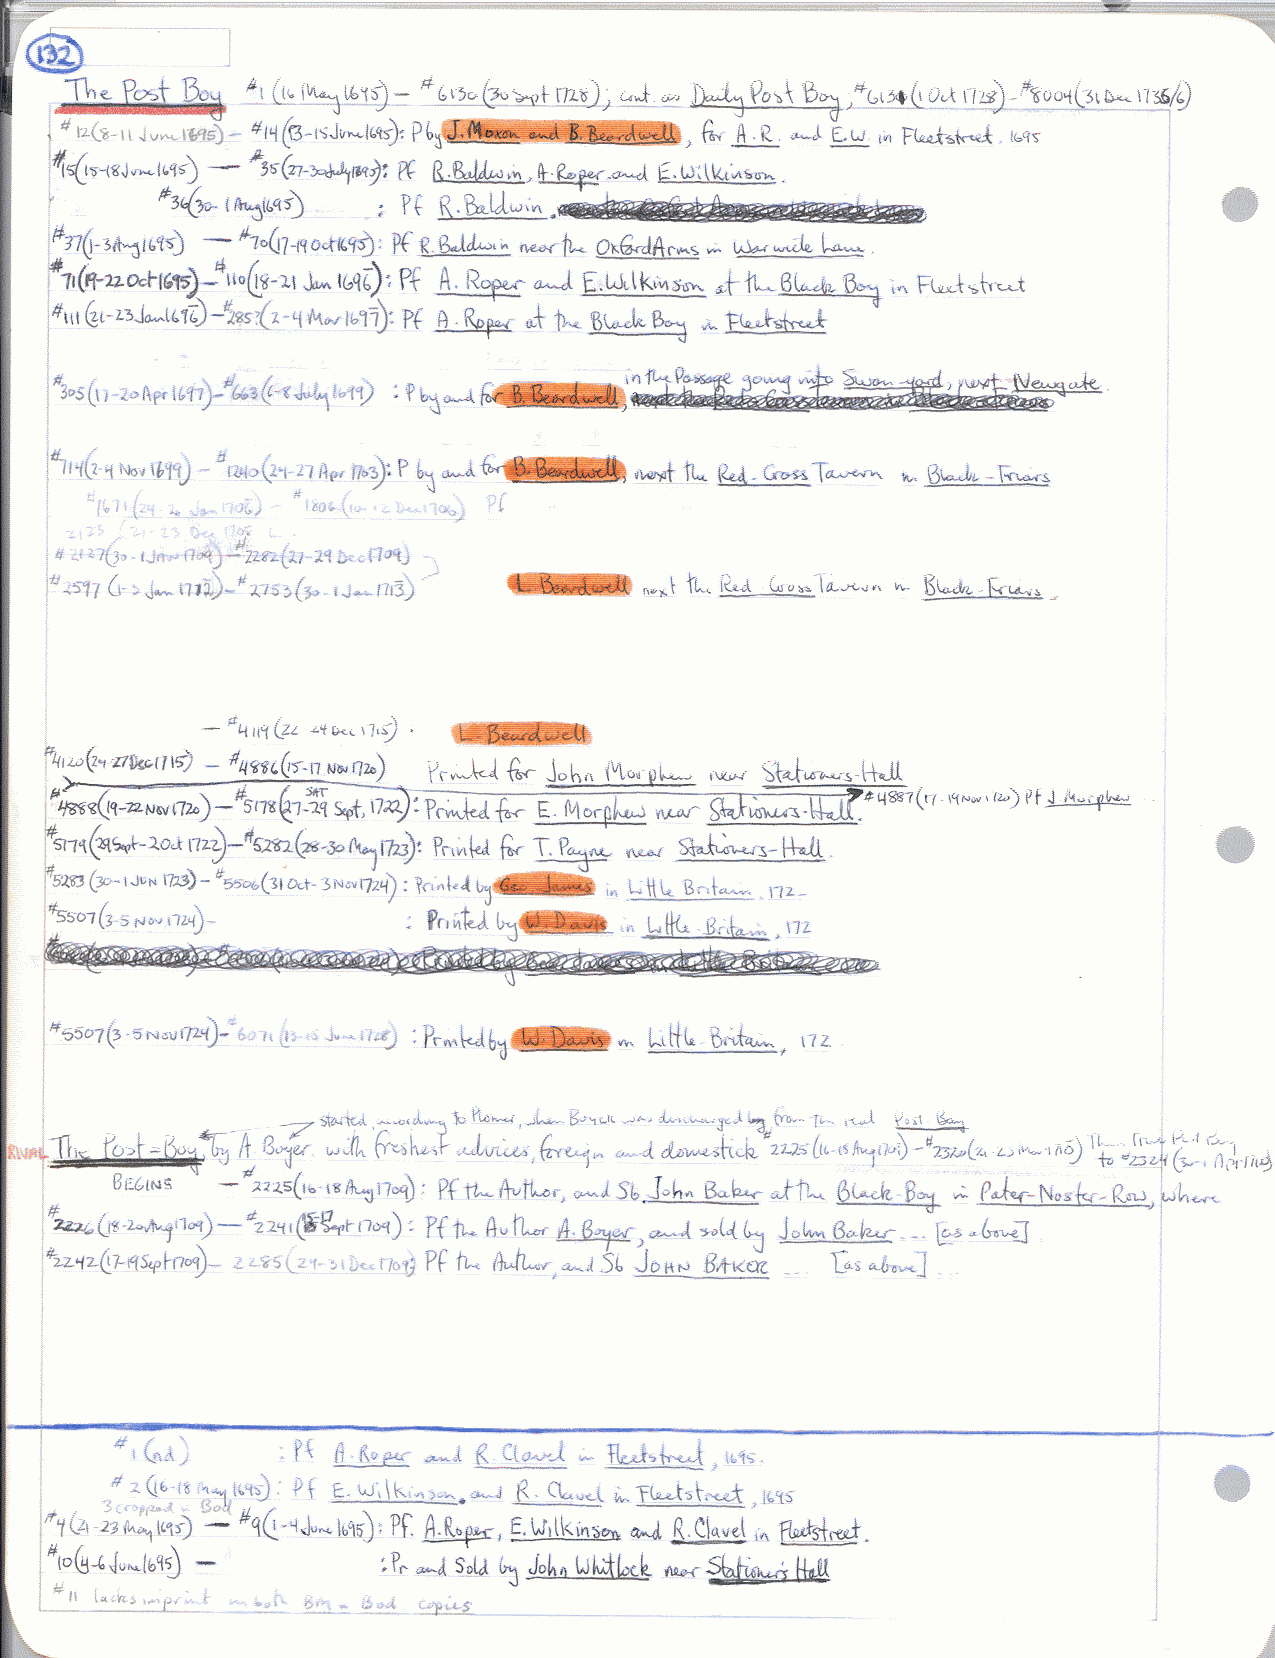 132
The Post Boy #1 (16 May 1695) — #6130 (30 Sept 1728); cont. as Daily Post Boy, #6131 (1 Oct 1728) - #8004 (31 Dec 1735/6)
#12 (8-11 June 1695) — #14 (13-15 June 1695): P by J. Moxon and B. Beardwell, for A.R. and E.W. in Fleetstreet. 1695
#15 (15-18 June 1695) — #35 (27-30 July 1695): Pf R. Baldwin, A. Roper and E. Wilkinson.
#36 (30-1 Aug 1695) : Pf R. Baldwin.
#37 (1-3 Aug 1695) — #70 (17-19 Oct 1695): Pf R. Baldwin near the Oxford Arms in Warwick Lane.
#71 (19-22 Oct 1695) — #110 (18-21 Jan 1696): Pf A. Roper and E. Wilkinson at the Black Boy in Fleetstreet
#111 (21-23 Jan 1696) — #285? (2-4 Mar 1697): Pf A. Roper at the Black Boy in Fleetstreet
in the Passage going into Swan-yard, next Newgate.
#305 (17-20 Apr 1697) - #663 (6-8 July 1699) : P by and for B. Beardwell,
#714 (2-4 Nov 1699) — #1240 (24-27 Apr 1703): P by and for B. Beardwell, next the Red-Cross Tavern in Black-Friars
#1671 (24-26 Jan 1706) — #1806 (10-12 Dec 1706) Pf
2123 (21-23 Dec 1708 L.
#2127 (30-1 Jan 1709) — #2282 (27-29 Dec 1709)
#2597 (1-3 Jan 1712) - #2753 (30-1 Jan 1713) L. Beardwell next the Red Cross Tavern in Black-Friars.
— #4119 (22-24 Dec 1715). L. Beardwell
#4120 (24-27 Dec 1715) — #4886 (15-17 Nov 1720) Printed for John Morphew near Stationers-Hall
#4887 (17-19 Nov 1720) Pf J Morphew
#4888 (19-22 Nov 1720) — #5178 (27-29 SAT Sept, 1722): Printed for E. Morphew near Stationers-Hall.
#5179 (29 Sept-2 Oct 1722) — #5282 (28-30 May 1723): Printed for T. Payne near Stationers-Hall.
#5283 (30-1 JUN 1723) - #5506 (31 Oct-3 Nov 1724): Printed by Geo James in Little Britain. 172-
#5507 (3-5 Nov 1724) - : Printed by W. Davis in Little-Britain, 172
#5507 (3-5 Nov 1724) - #6071 (13-15 June 1728) : Printed by W. Davis in Little-Britain, 172
started, according to Plomer, when Boyer was discharged from the real Post Boy
RIVAL The Post=Boy, by A Boyer. with freshest advices, foreign and domestick #2225 (16-18 Aug 1709) - #2320 (21-23 Mar 1710) Then True Post Boy to #2324 (30-1 Apr 1710)
BEGINS — #2225 (16-18 Aug 1709): Pf the Author, and Sb. John Baker at the Black-Boy in Pater-Noster-Row, where
#2226 (18-20 Aug 1709) — #2241 (15-17 Sept 1709): Pf the Author A. Boyer, and sold by John Baker ... [as above]
#2242 (17-19 Sept 1709) - 2285 (29-31 Dec 1709): Pf the Author, and Sb JOHN BAKER ... [as above] ...
#1 (nd) : Pf A. Roper and R. Clavel in Fleetstreet, 1695.
#2 (16-18 May 1695): Pf E. Wilkinson. and R. Clavel in Fleetstreet, 1695
3 cropped in Bod
#4 (21-23 May 1695) — #9 (1-4 June 1695): Pf. A. Roper, E. Wilkinson and R. Clavel in Fleetstreet.
#10 (4-6 June 1695) — : Pr and Sold by John Whitlock near Stationer's Hall
#11 lacks imprint in both BM - Bod copies